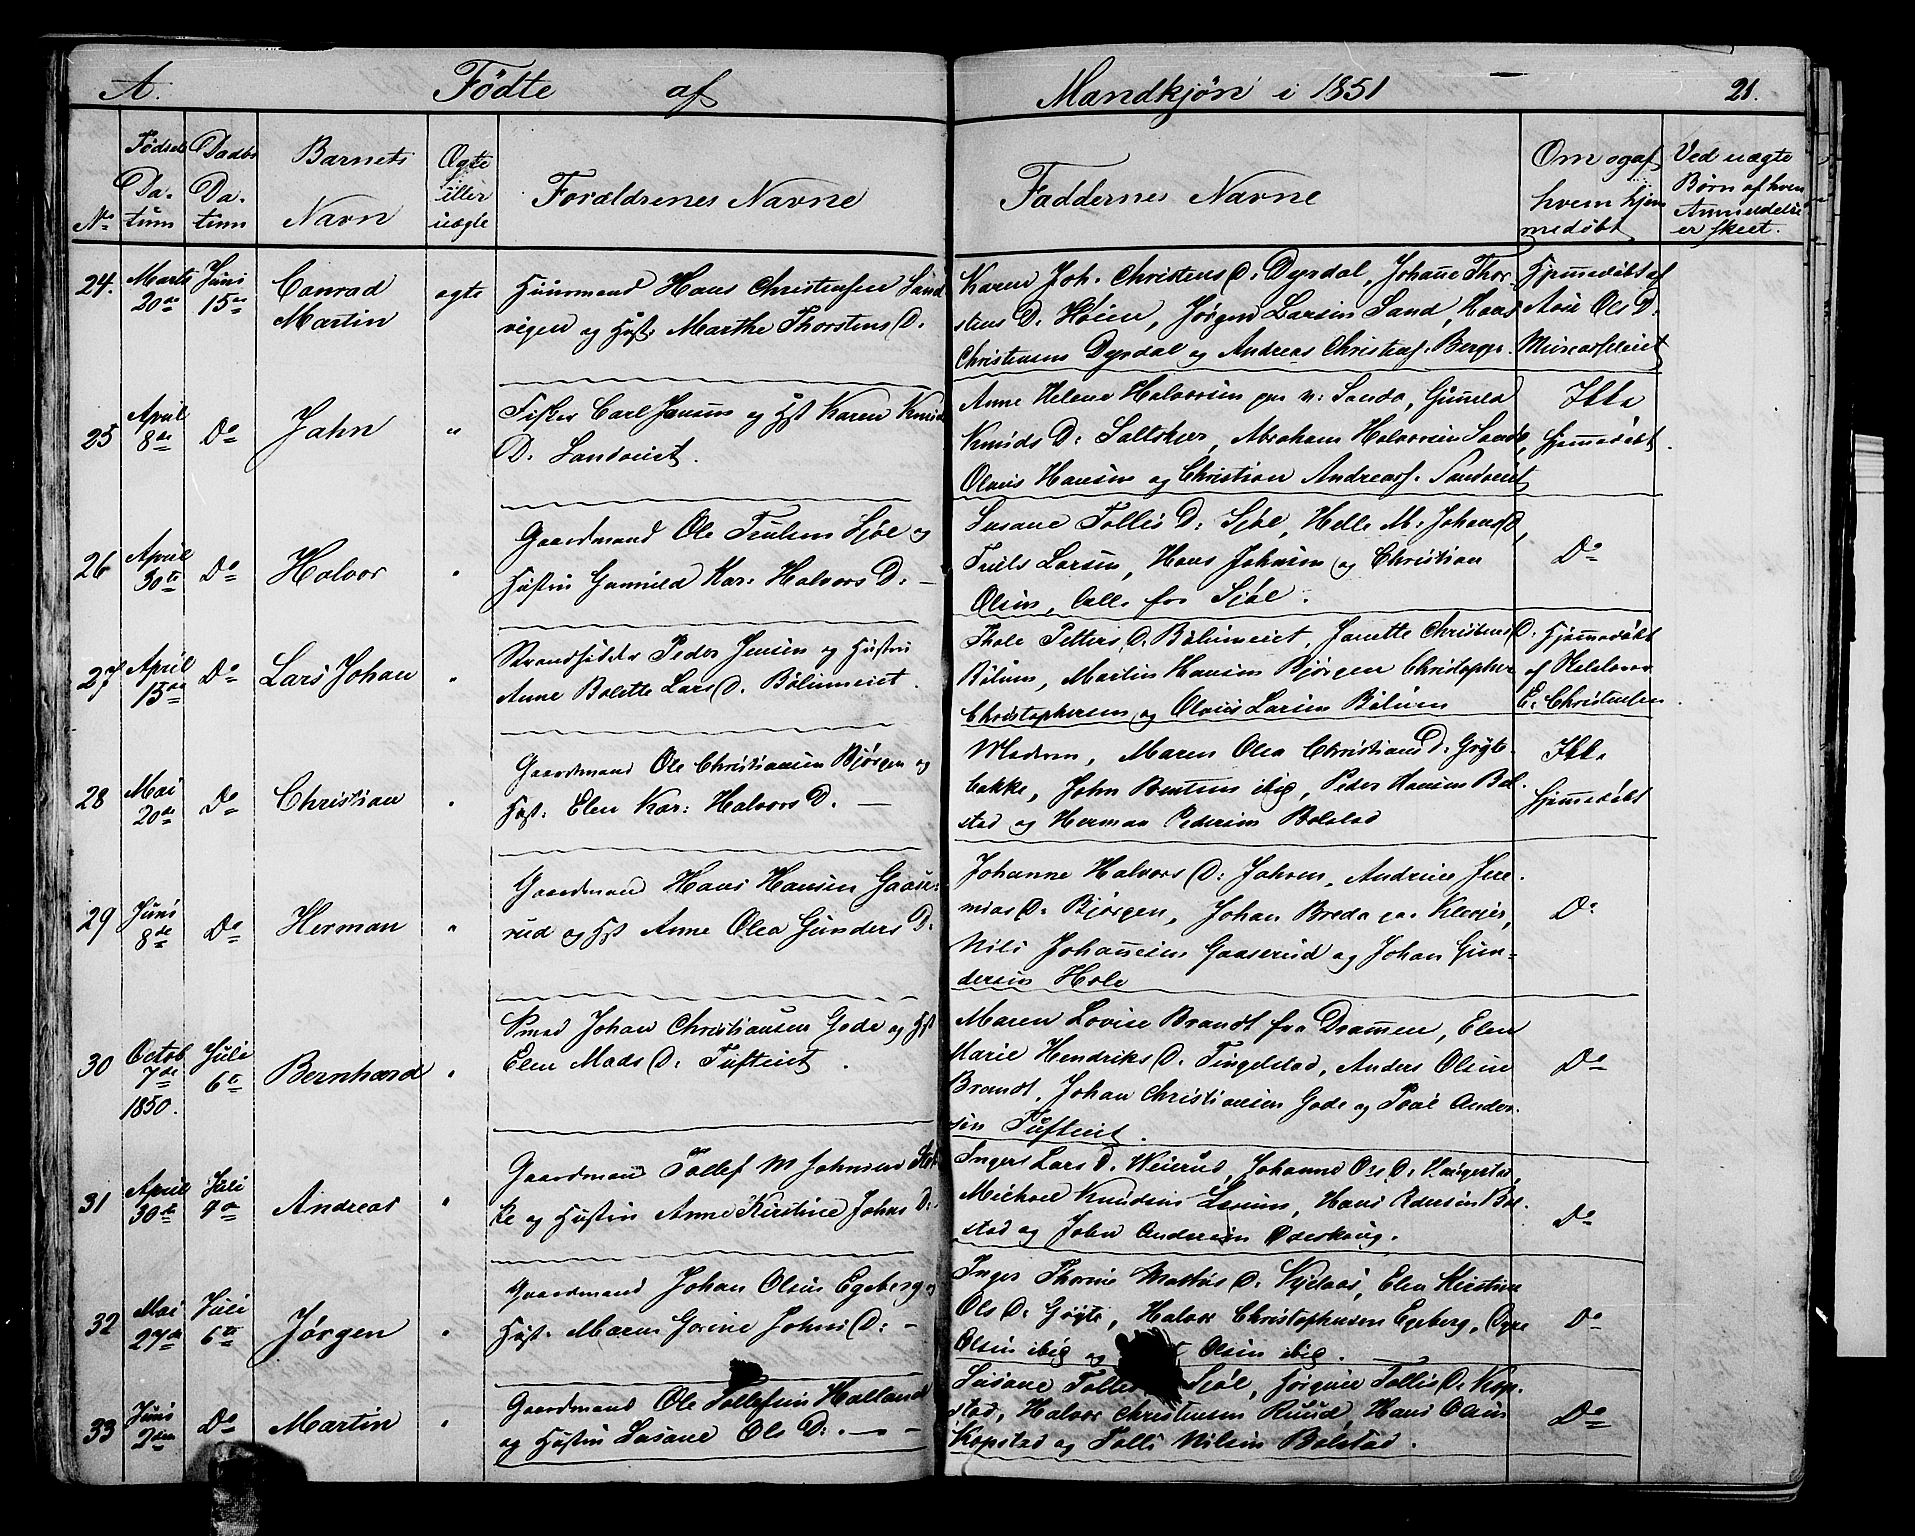 A. Fødte af Mandkjøn i 1851 21.
No
Fødsels Datum
Daabs Datum
Barnets Navn
Ægte eller uægte
Forældrenes Navne
Faddernes Navne
Om og af hvem hjemmedøbt
Ved uægte Børn af hvem Anmeldelse er skeet.
24.
Marts 20de
Juni 15de
Conrad
Martin
ægte
Huusmand Hans Christensen Sand
vigen og Hust: Marthe Thorstens D.
Karen Joh. Christens D. Dyrdal, Johanne Thor
stens D. Høien, Jørgen Larsen Sand, Hans
Christensen Dyrdal og Andreas Christens. Berge.
Hjemmedøbt af
Ols D.
25
April 8de
Do
Jahn
"
Fisker Carl Jensen og Hst Karen Knuds
D. Sandveiet.
Anne Helene Halvorsen Sande, Gunnild
Knuds D: Saltskjær, Abraham Halvorsen Sande
Olaus Hansen og Christian Andreas. Sandveiet
Ikke
hjemmedøbt.
26
April 30te
Do
Halvor
"
Gaardmand Ole Trulsen Sjøl og
Hustru Gunnild Kar: Halvors D: —
Susane Tollefs D: Sjøl, Helle M: Johans D,
Truls Larsen, Hans Johnsen og Christian
Olsen, alle fra Sjøl.
Do
27
April 15de
Do
Lars Johan
"
Strandsidder Peder Jensen og Hustru
Anne Bolette Lars D. Bølumeiet.
Thole Petters D. Bølumeiet, Janette Christens D.
Bølum, Martin Hansen Bjørgen Christopher
Christophersen og Olaus Larsen Bølum
Hjemmedøbt
af
E. Christensen
28
Mai 20de
Do
Christian
"
Gaardmand Ole Christiansen Bjørgen og
Hust: Elen Kar: Halvors D. —
Modren, Maren Olea Christians D. Grytebakke, John Bentsen ibid, Peder Hansen Bolstad og Herman Pedersen Bolstad
Ikke
hjemmedøbt
29
Juni 8de
Do
Herman
"
Gaardmand Hans Hansen Gaaserud og Hst Anne Olea Gunders D:
Johanne Halvors D: Jahren, Andrine Jeremias D. Bjørgen, Johan Breda paa Klever,
Nils Johannesen Gaaserud og Johan Gundersen Hole
Do
30
Octob 7de
1850.
Juli 6te
Bernhard
"
Smed Johan Christiansen Gode og Hst
Elen Mads D. Tufteiet.
Maren Lovise Brandt fra Drammen, Elen
Marie Hendriks D. Tingelstad, Anders Olsen
Brandt, Johan Christiansen Gode og Poul Andersen Tufteiet.
Do
31
April 30te
Juli
Andreas
"
Gaardmand Tollef M Johnsen
og Hustru Anne Kirstine Johns D:
Inger Lars D. Weierud, Johanne Ols D.
Michael Knudsen Lerum, Hans Pedersen Bolstad og John Andersen Ødeskoug.
Do
32
Mai 27de
Juli 6te
Jørgen
"
Gaardmand Johan Olsen Egeberg og
Hust. Maren Gorine Johns D: —
Inger Thorine Mathis D. Nydaas, Elen Kirstine
Ols D. Gryte, Halvor Christophersen Egeberg,
Olsen ibid og Olsen ibid.
Do
33
Juni 2den
Do
Martin
"
Gaardmand Ole Tollefsen Halland
og Hustru Susane Ols D: —
Susane Sjøl, Jørgine Tollefs D. Kopstad, Halvor Christensen Ruud, Hans Olsen
Kopstad og Tollef Nilsen Bolstad.
Do